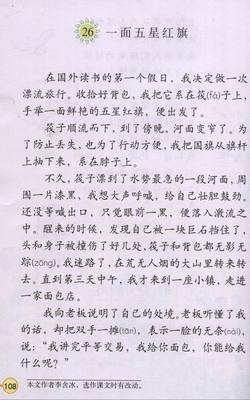 26 一面五星红旗
在国外读书的第一个假日，我决定做一次
漂流旅行。收拾好背包，我把它系在筏(fá)子上，
手举一面鲜艳的五星红旗，便出发了。
筏子顺流而下，到了傍晚，河面变窄了。为
了防止丢失，也为了行动方便，我把国旗从旗杆
上抽下来，系在脖子上。
不久，筏子漂到了水势最急的一段河面，周
围一片漆黑，我想大声呼喊，给自己壮胆鼓劲。
还没等喊出口，只觉眼前一黑，便落入激流之
中。醒来的时候，发现自己被一块巨石挡住了，
头和身子被撞伤了好几处，筏子和背包都无影无
踪(zōng)。我迷路了，在荒无人烟的大山里转来转
去。直到第三天中午，我才来到一座小镇，走进
一家面包店。
我向老板说明了自己的处境。老板听懂了我
的话，却把双手一摊(tān)，表示一脸的无奈(nài)，
说：“我讲究平等交易，我给你面包，你能给我
什么呢？”
108 本文作者李含冰，选作课文时有改动。